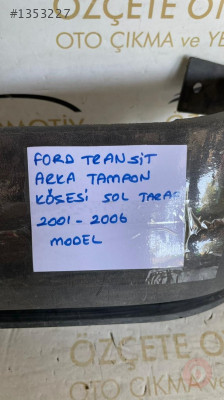 #1353227
ÖZÇETE O
OTO ÇIKMA ve YE
FORD TRANSİT
ARKA TAMPON
KÖŞESİ SOL TARAF
2001-2006
MODEL
ÖZÇETE OT
OTO ÇIKMA